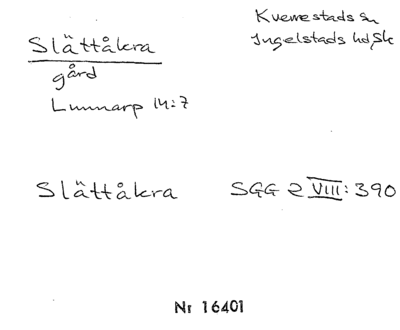 Slättåkra
gård
Lunnarp 14:7
Kverrestads sn
Ingelstads hd, Sk
Slättåkra SGG 2 VIII: 390
Nr 16401